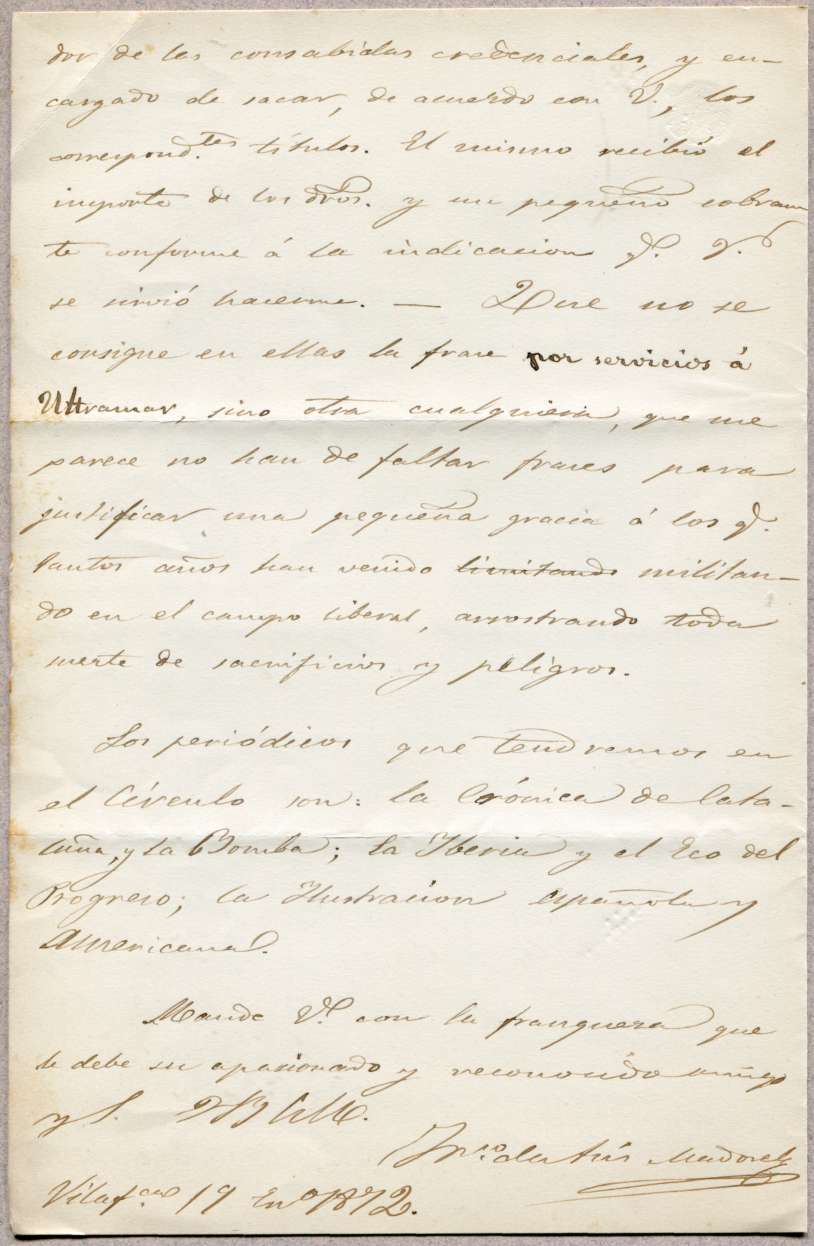 dor de las consabidas credenciales, y en-
cargado de sacar, de acuerdo con V., los
correspond.tes títulos. El mismo recibió el
importe de los dros. y un pequeño sobran
te conforme á la indicacion q. V.
se sirvió hacerme. — Que no se
consigne en ellas la frase por servicios á
Ultramar, sino otra cualquiera, que me
parece no han de faltar frases para
justificar una pequeña gracia á los q.
tantos años han venido limitando militan-
do en el campo liberal, arrostrando toda
suerte de sacrificios y peligros.
Los periódicos que tendremos en
el Círculo son: la Crónica de Cata-
luña, y la Bomba; la Iberia y el Eco del
Progreso; la Ilustracion española y
Americana.
Mande V. con la franqueza que
le debe su apasionado y reconocido amigo
y S. Q B S M.
Vilaf.ca 19 En.o 1872.